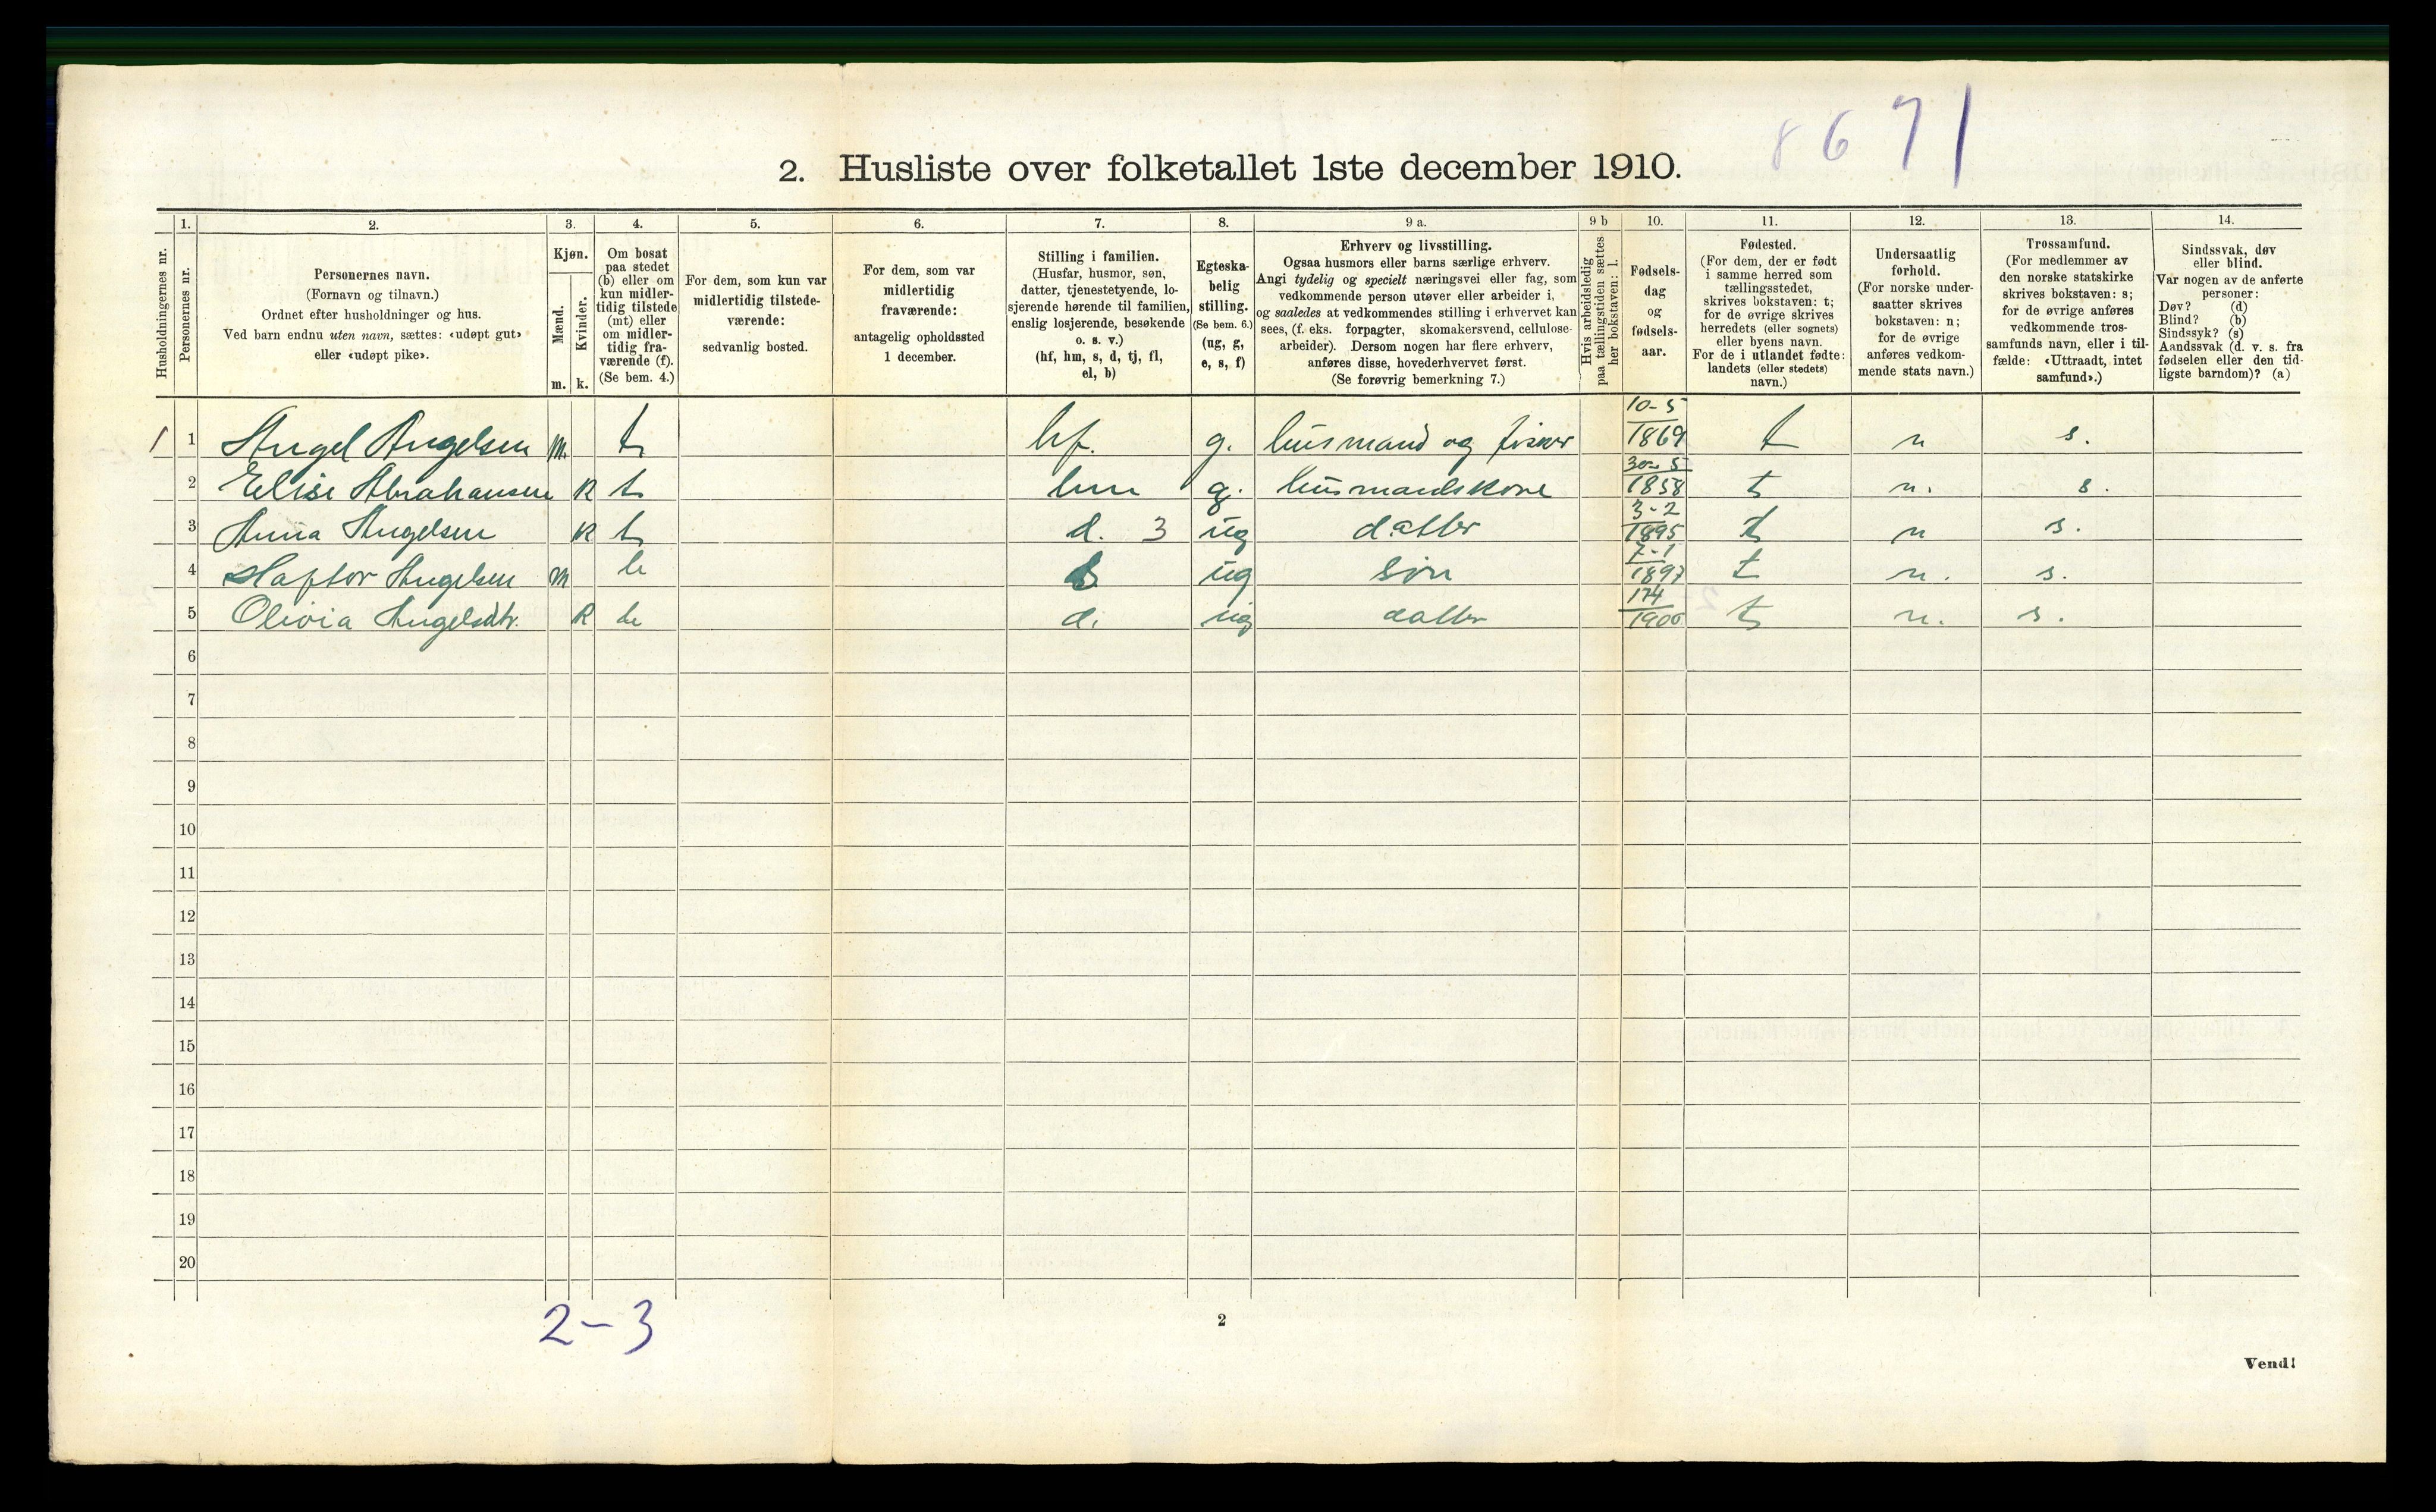 8671
2. Husliste over folketallet 1ste december 1910.
Husholdningernes nr.
1.
Personernes nr.
2.
Personernes navn.
(Fornavn og tilnavn.)
Ordnet efter husholdninger og hus.
Ved barn endnu uten navn, sættes: «udøpt gut»
eller «udøpt pike».
3.
Kjøn.
Mænd.
Kvinder.
m. k.
4.
Om bosat
paa stedet
(b) eller om
kun midler-
tidig tilstede
(mt) eller
om midler-
tidig fra-
værende (f).
(Se bem. 4.)
5.
For dem, som kun var
midlertidig tilstede-
værende:
sedvanlig bosted.
6.
For dem, som var
midlertidig
fraværende:
antagelig opholdssted
1 december.
7.
Stilling i familien.
(Husfar, husmor, søn,
datter, tjenestetyende, lo-
sjerende hørende til familien,
enslig losjerende, besøkende
o. s. v.)
(hf, hm, s, d, tj, fl,
el, b)
8.
Egteska-
belig
stilling.
(Se bem. 6.)
(ug, g,
e, s, f)
9 a.
Erhverv og livsstilling.
Ogsaa husmors eller barns særlige erhverv.
Angi tydelig og specielt næringsvei eller fag, som
vedkommende person utøver eller arbeider i,
og saaledes at vedkommendes stilling i erhvervet kan
sees, (f. eks. forpagter, skomakersvend, cellulose-
arbeider). Dersom nogen har flere erhverv,
anføres disse, hovederhvervet først.
(Se forøvrig bemerkning 7.)
9 b
Hvis arbeidsledig
paa tællingstiden sættes
her bokstaven: l.
10.
Fødsels-
dag
og
fødsels-
aar.
11.
Fødested.
(For dem, der er født
i samme herred som
tællingsstedet,
skrives bokstaven: t;
for de øvrige skrives
herredets (eller sognets)
eller byens navn.
For de i utlandet fødte:
landets (eller stedets)
navn.)
12.
Undersaatlig
forhold.
(For norske under-
saatter skrives
bokstaven: n;
for de øvrige
anføres vedkom-
mende stats navn.)
13.
Trossamfund.
(For medlemmer av
den norske statskirke
skrives bokstaven: s;
for de øvrige anføres
vedkommende tros-
samfunds navn, eller i til-
fælde: «Uttraadt, intet
samfund».)
14.
Sindssvak, døv
eller blind.
Var nogen av de anførte
personer:
Døv? (d)
Blind? (b)
Sindssyk? (s)
Aandssvak (d. v. s. fra
fødselen eller den tid-
ligste barndom)? (a)
1 1 Angel Angelsen m. b hf. g. husmand og fisker 10-5 1869 t n s.
2 Elise Abrahansen k b hm g. husmandskone 30-5 1858 t n. s.
3 Anna Angelsen k b d. 3 ug datter 3-2 1895 t n s.
4 Haftor Angelsen m b s ug søn 7-1 1897 t n. s.
5 Olivia Angelsdtr. k b d. ug datter 17/4 1900 t n. s.
6
7
8
9
10
11
12
13
14
15
16
17
18
19
20
2-3
2
Vend!